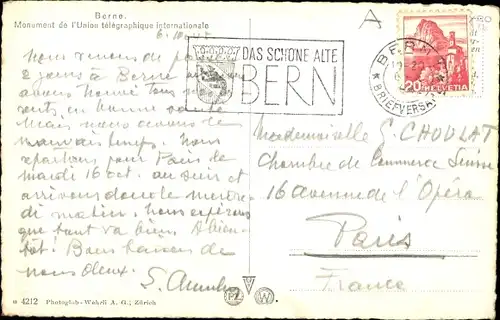 Berne.
Monument de l'Union télégraphique internationale
A
DAS SCHÖNE ALTE
BERN
BERN
BRIEFVERSAND
20 HELVETIA
Nous venons de
2 jours à Berne
avons trouvé tous
en bonne
Mais nous avons le
mauvais temps. Nous
repartons pour Paris le
mardi 16 oct. au soir et
arrivons donc le mercre-
di matin. Nous espérons
que tout va bien. A bien-
tôt! Bons baisers de
nous deux.
S.
Mademoiselle S. CHOULAT
Chambre de Commerce Suisse
16 avenue de l'Opéra
Paris
France
4212 Photogloh-Wehrli A. G.; Zürich
P Z W